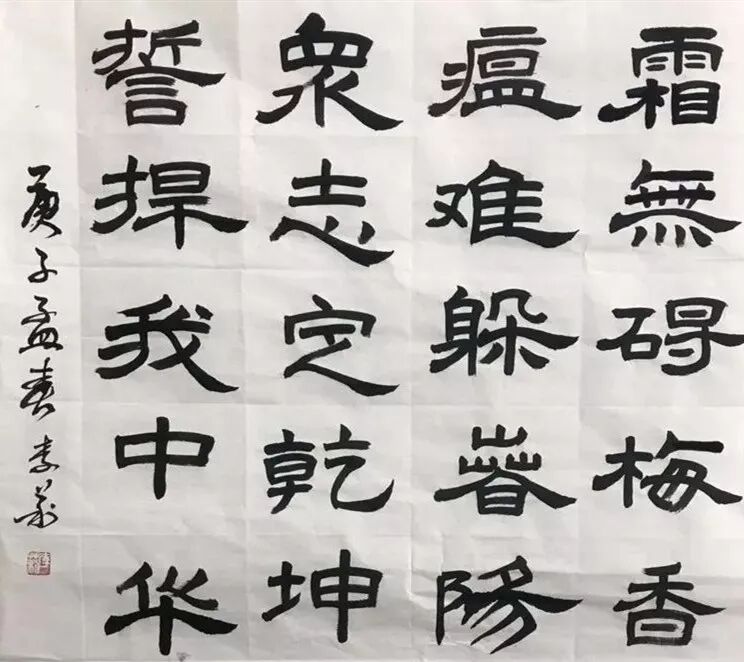 霜無碍梅香
瘟难躲萅陽
衆志定乾坤
誓捍我中华
庚子孟春李